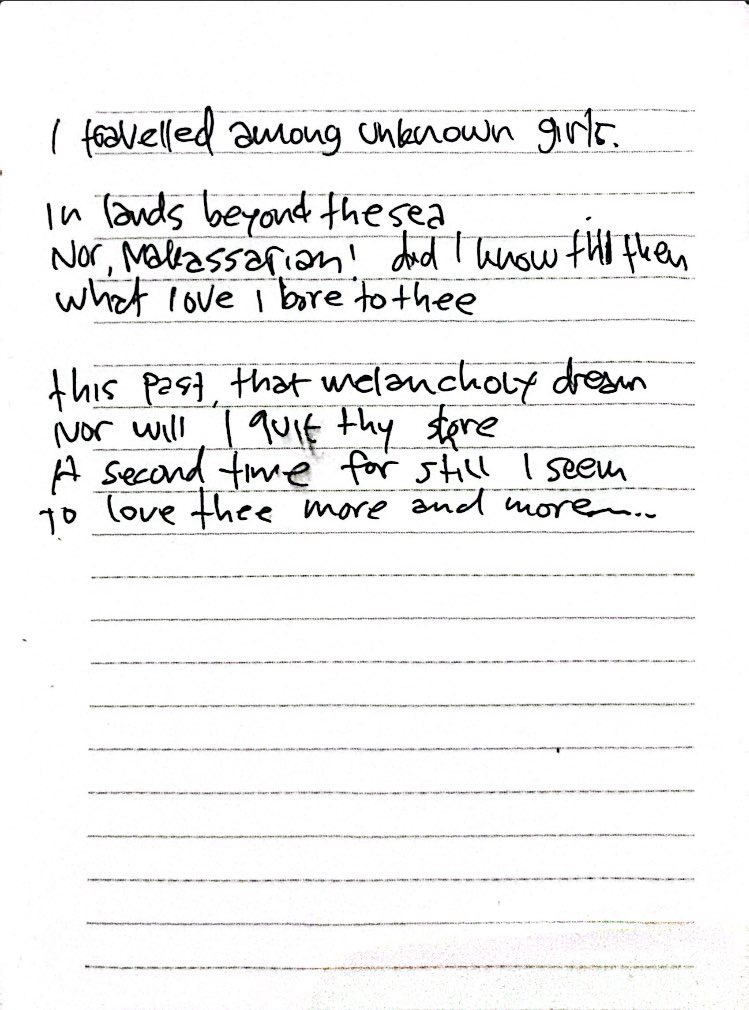 I travelled among unknown girls.
In lands beyond the sea
Nor, Makassarian! did I know till then
what love I bore to thee
this past, that melancholy dream
Nor will I quit thy store
A second time for still I seem
To love thee more and more....